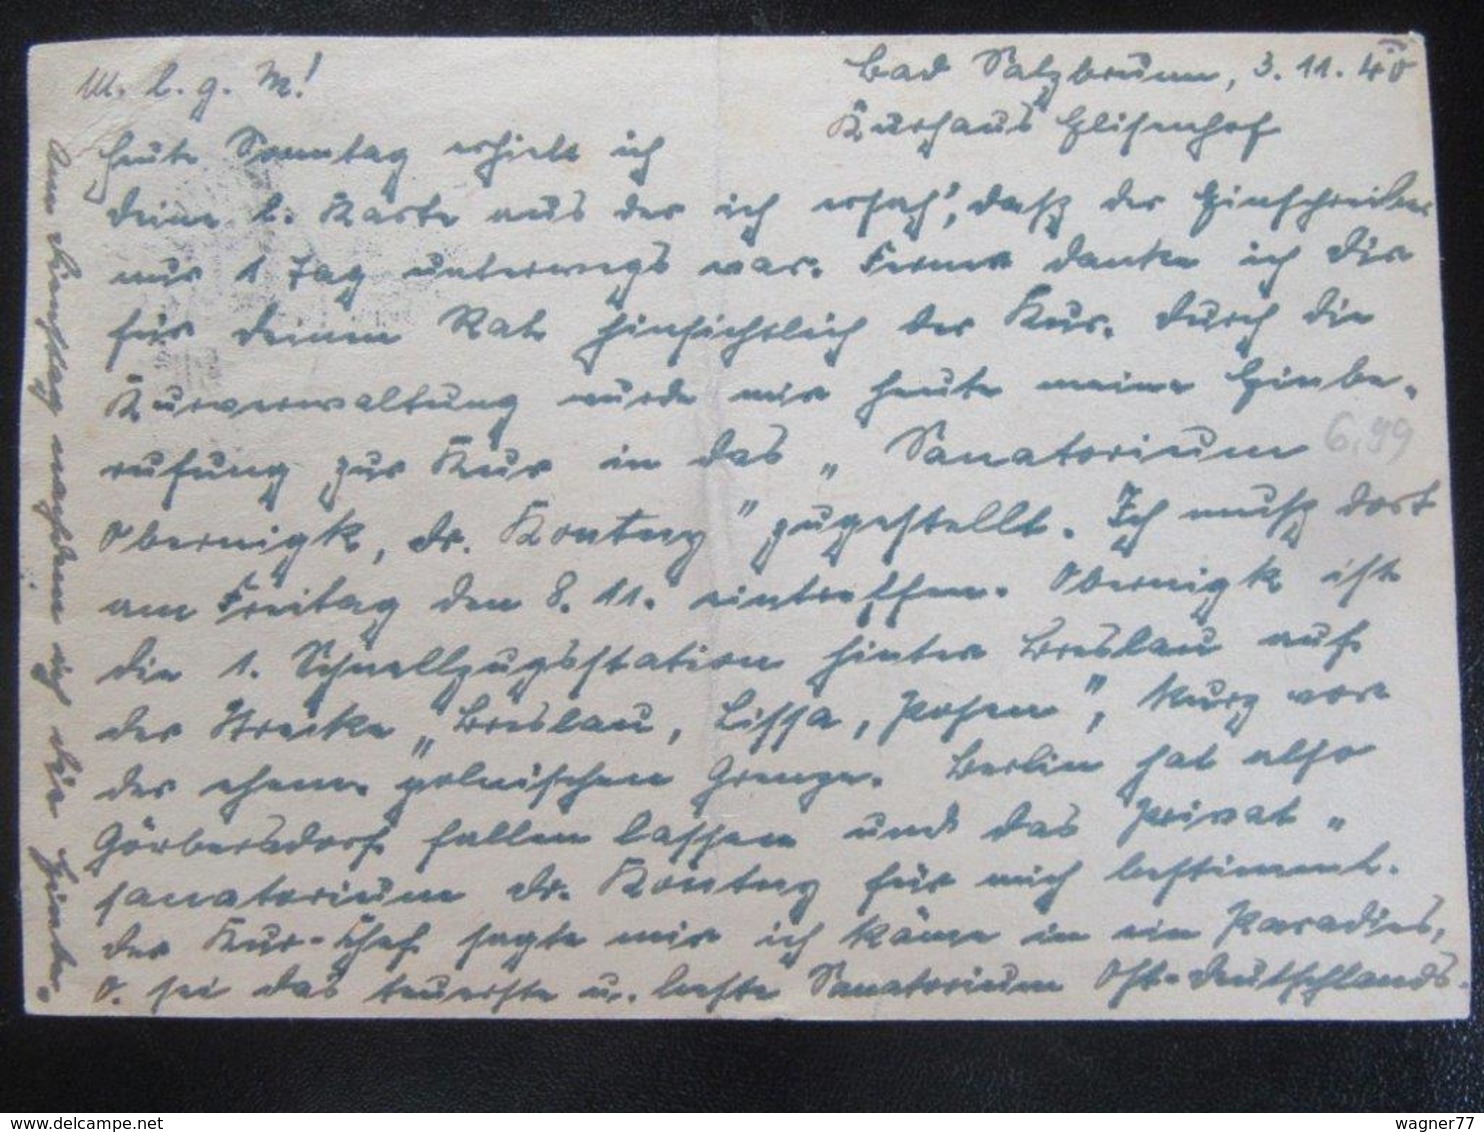 Bad Salzbrunn, 3.11.40
Kurhaus Elisenhof
M. l. g. M!
Heute Sonntag erhielt ich
Deine l. Karte aus der ich ersah, daß der Einschreiber
nur 1 Tag unterwegs war. Ferner danke ich Dir
für Deinen Rat hinsichtlich der Kur. Durch die
Kurverwaltung wurde mir heute meine Einbe-
rufung zur Kur in das „Sanatorium
Obernigk, Dr. Kontny" zugestellt. Ich muß dort
am Freitag den 8.11. eintreffen. Obernigk ist
die 1. Schnellzugsstation hinter Breslau auf
der Strecke „Breslau, Lissa, Posen", kurz vor
der ehem. polnischen Grenze. Berlin hat also
Görbersdorf fallen lassen und das Privat-
sanatorium Dr. Kontny für mich bestimmt.
Der Kur-Chef sagte mir ich käme in ein Paradies,
O. sei das teuerste u. beste Sanatorium Ost-Deutschlands.
Am Dienstag ich Dir
6,99
wagner77